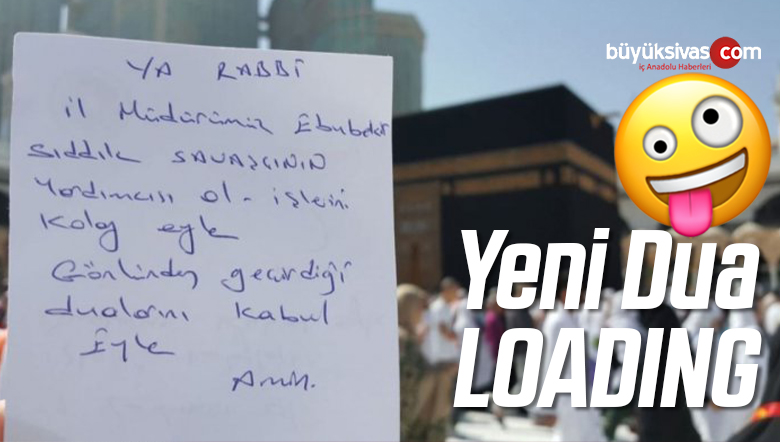 YA RABBİ
il Müdürümüz Ebubekir
Sıddık SAVAŞÇININ
Yardımcısı ol - işlerini
Kolay eyle
Gönlünden geçirdiği
dualarını kabul
Eyle
büyüksivas.com
iç Anadolu Haberleri
Yeni Dua
LOADING